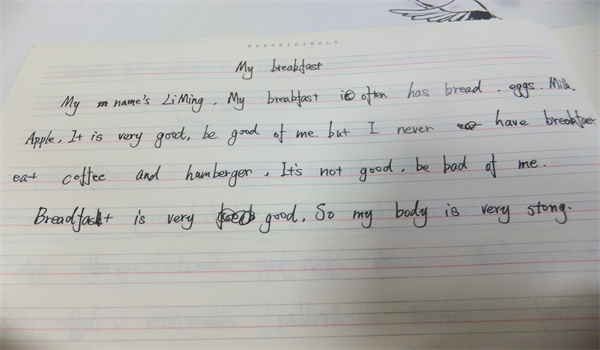 My breakfast
My name's LiMing. My breakfast is often has bread. eggs. Milk.
Apple. It is very good, be good of me. but I never have breakfast
eat coffee and hamberger, It's not good, be bad of me.
Breadfast is very good. So my body is very stong.